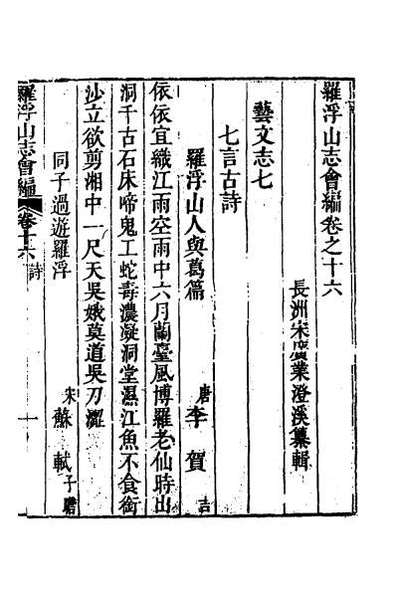 羅浮山志會編卷之十六
長洲宋廣業澄溪纂輯
藝文志七
七言古詩
羅浮山人與葛篇 唐 李賀 吉
依依宜織江雨空雨中六月蘭臺風博羅老仙時出
洞千古石床啼鬼工蛇毒濃凝洞堂濕江魚不食銜
沙立欲剪湘中一尺天吳娥莫道吳刀澀
同子過遊羅浮 宋 蘇軾 子瞻
羅浮山志會編 卷十六 詩 一